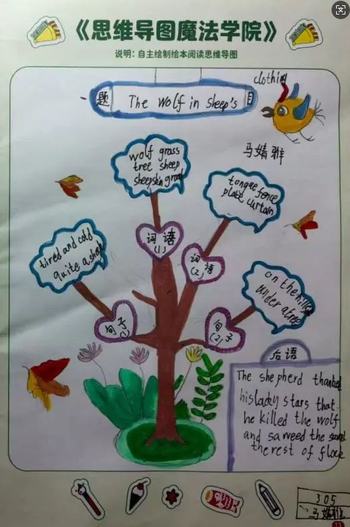 《思维导图魔法学院》
说明：自主绘制绘本阅读思维导图
clothing
题 The Wolf in sheep's 目
马婧雅
wolf grass
tree sheep
词语
(1)
词语
(2)
tired and cold
quite a sheep
句子
(1)
on the hills
under a tree
句子
(2)
后语
The shepherd thanked
his lady stars that
he killed the wolf
and saveed the
the rest of flock
305